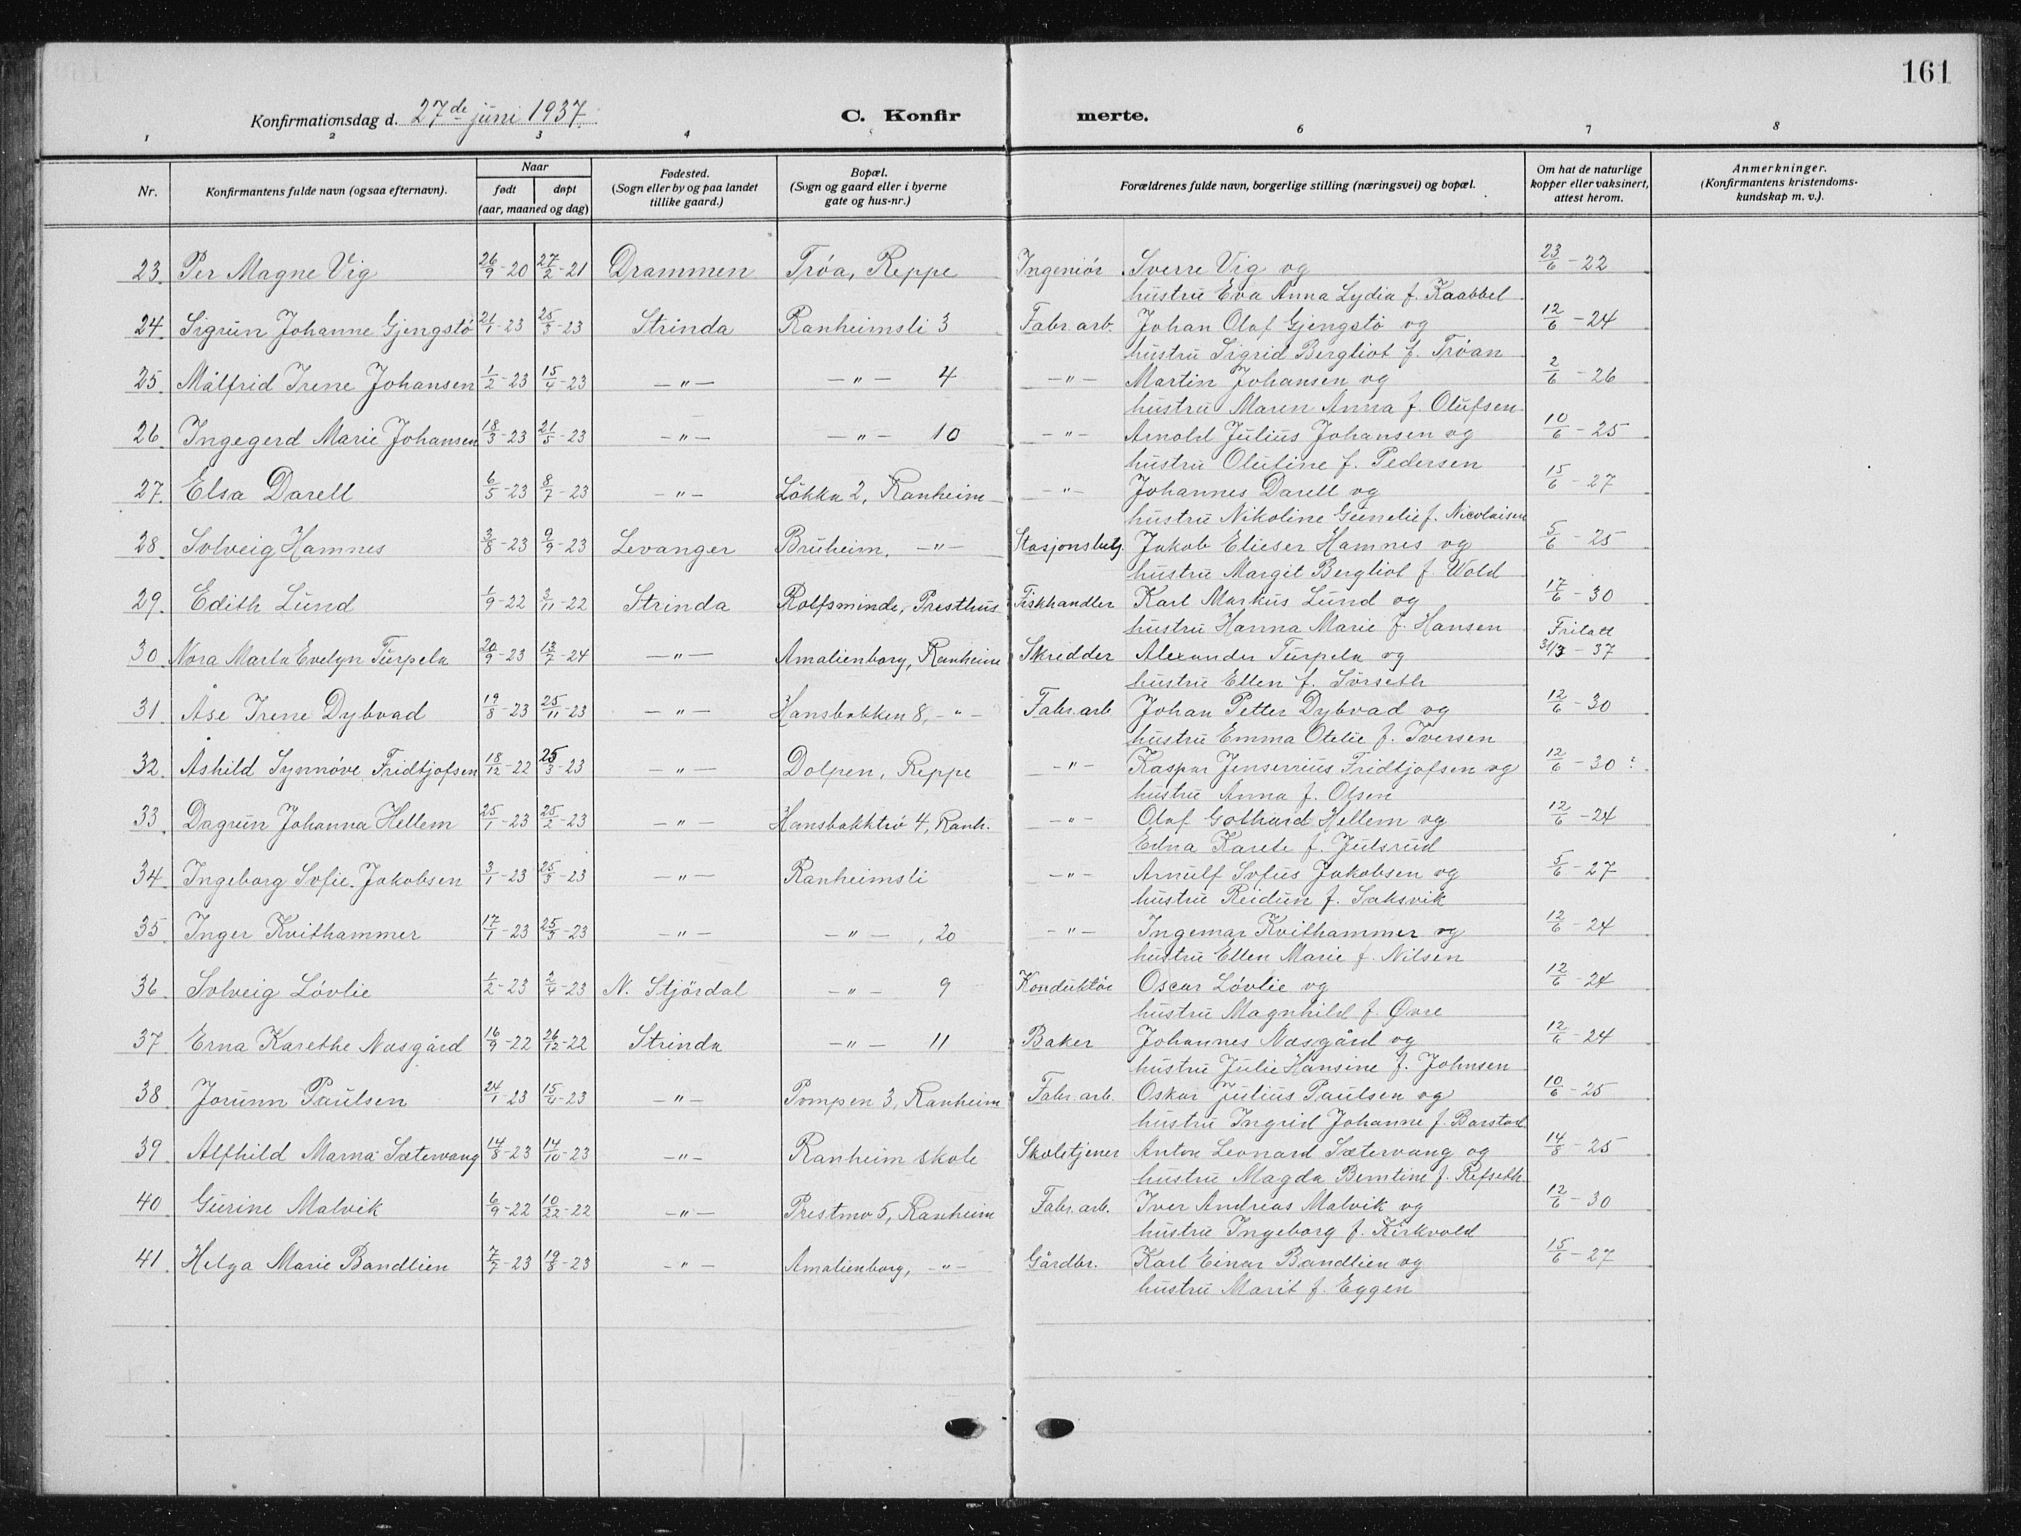 161
Konfirmationsdag d. 27de juni 1937. C. Konfirmerte.
1 2 3 4 5 6 7 8
Nr. Konfirmantens fulde navn (ogsaa efternavn). Naar født døpt (aar, maaned og dag) Fødested. (Sogn eller by og paa landet tillike gaard.) Bopæl. (Sogn og gaard eller i byerne gate og hus-nr.) Forældrenes fulde navn, borgerlige stilling (næringsvei) og bopæl. Om hat de naturlige kopper eller vaksinert, attest herom. Anmerkninger. (Konfirmantens kristendomskundskap m. v.).
23. Per Magne Vig 26/9-20 27/2-21 Drammen Trøa, Reppe Ingeniør Sverre Vig og 23/6-22
hustru Eva Anna Lydia f. Kaabbel
24. Sigrun Johanne Gjengstø 21/1-23 25/3-23 Strinda Ranheimsli 3 Fabr. arb. Johan Olaf Gjengstø og 12/6-24
hustru Sigrid Bergliot f. Trøan
25. Målfrid Irene Johansen 1/2-23 15/4-23 -"- -"- 4 -"- Martin Johansen og 2/6-26
hustru Maren Anna f. Olufsen
26. Ingegerd Marie Johansen 18/3-23 21/5-23 -"- -"- 10 -"- Arnold Julius Johansen og 10/6-25
hustru Olufine f. Pedersen
27. Elsa Darell 6/5-23 8/7-23 -"- Løkka 2, Ranheim -"- Johannes Darell og 15/6-27
hustru Nikoline f. Nicolaisen
28. Solveig Hamnes 3/8-23 9/9-23 Levanger Bruheim, -"- Stasjonsbetj. Jakob Elieser Hamnes og 5/6-25
hustru Margit Bergliot f. Wold
29. Edith Lund 1/9-22 3/11-22 Strinda Rolfsminde, Presthus Fiskhandler Karl Markus Lund og 17/6-30
hustru Hanna Marie f. Hansen
30. Nora Marta Evelyn Turpela 20/9-23 13/7-24 -"- Amalienborg, Ranheim Skredder Alexander Turpela og Fritatt 31/3-37
hustru Ellen f. Sørseth
31. Åse Irene Dybvad 19/8-23 25/11-23 -"- Hansbakken 8, -"- Fabr. arb. Johan Petter Dybvad og 12/6-30
hustru Emma Otelie f. Iversen
32. Åshild Synnøve Fridtjofsen 18/12-22 25/3-23 -"- Dolpen, Reppe -"- Kaspar Jensenius Fridtjofsen og 12/6-30
hustru Anna f. Olsen
33. Dagrun Johanna Hellem 25/1-23 25/2-23 -"- Hansbakktrø 4, Ranh. -"- Olaf Gothard Hellem og 12/6-24
Edna Karete f. Julsrud
34. Ingeborg Sofie Jakobsen 3/1-23 25/3-23 -"- Ranheimsli -"- Arnulf Sofus Jakobsen og 5/6-27
hustru Reidun f. Saksvik
35. Inger Kvithammer 17/1-23 25/3-23 -"- -"-, 20 -"- Ingemar Kvithammer og 12/6-24
hustru Ellen Marie f. Nilsen
36. Solveig Løvlie 1/2-23 2/4-23 N. Stjørdal -"- 9 Konduktør Oscar Løvlie og 12/6-24
hustru Magnhild f. Øvre
37. Erna Karethe Næsgård 16/9-22 26/12-22 Strinda -"- 11 Baker Johannes Næsgård og 12/6-24
hustru Julie Hansine f. Johnsen
38. Jorunn Paulsen 24/1-23 15/4-23 -"- Pompen 3, Ranheim Fabr. arb. Oskar Julius Paulsen og 10/6-25
hustru Ingrid Johanne f. Barstad
39. Alfhild Marna Sætervang 14/8-23 14/10-23 -"- Ranheim skole Skoletjener Anton Leonard Sætervang og 14/8-25
hustru Magda Berntine f. Refseth
40. Gurine Malvik 6/9-22 10/22-22 -"- Prestmo 5, Ranheim Fabr. arb. Iver Andreas Malvik og 12/6-30
hustru Ingeborg f. Kirkvold
41. Helga Marie Bandlien 7/7-23 19/8-23 -"- Amalienborg, -"- Gårdbr. Karl Einar Bandlien og 15/6-27
hustru Marit f. Eggen